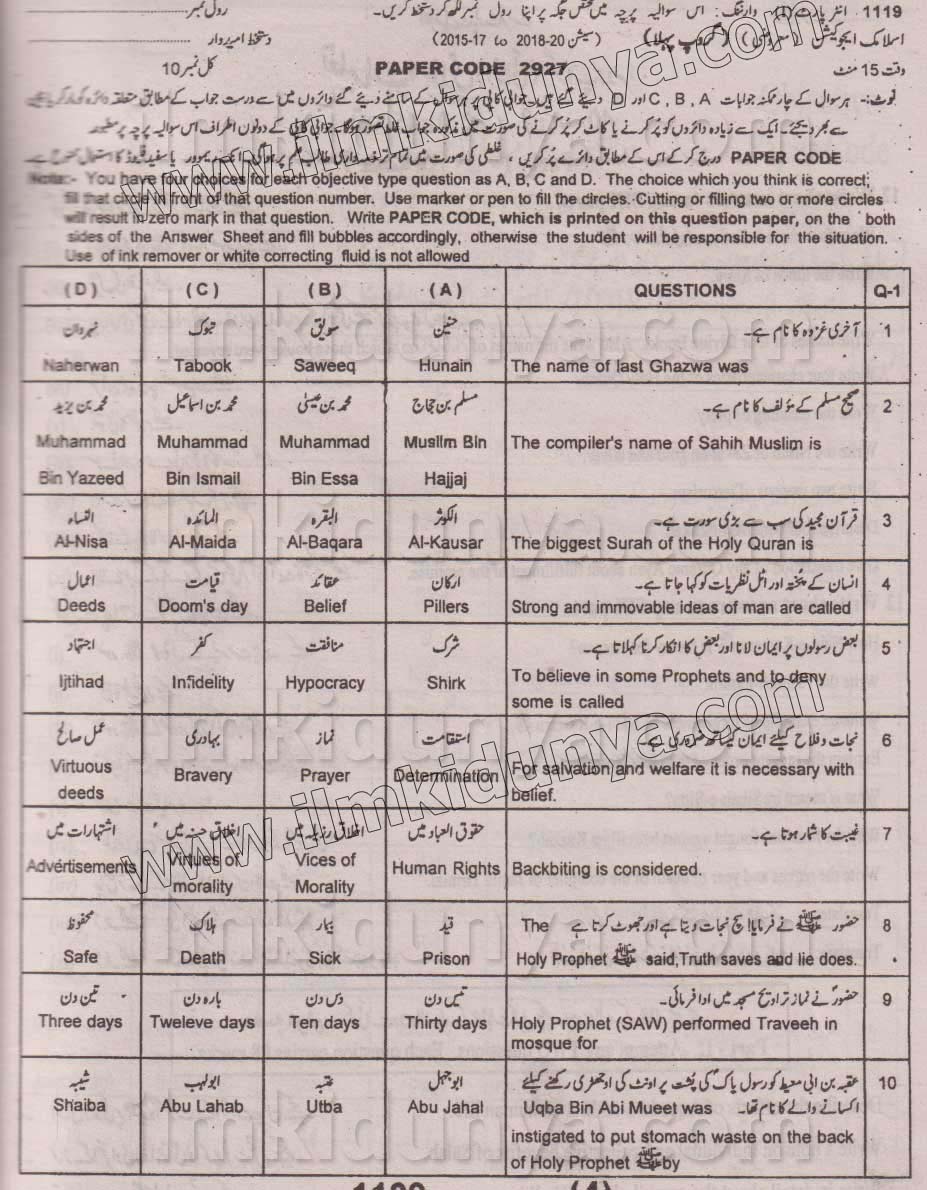 1119 ۔ انٹر پارٹ (I) وارننگ: اس سوالیہ پرچہ میں مختص جگہ پر اپنا رول نمبر لکھ کر دستخط کریں۔ رول نمبر
اسلامک ایجوکیشن (معروضی) (گروپ پہلا) (سیشن 20-2018 to 17-2015) دستخط امیدوار
وقت 15 منٹ PAPER CODE 2927 کل نمبر 10
نوٹ:- ہر سوال کے چار ممکنہ جوابات A ، B ، C اور D دیئے گئے ہیں۔ جوابی کاپی پر ہر سوال کے سامنے دیئے گئے دائروں میں سے درست جواب کے مطابق متعلقہ دائرہ کو
سے بھر دیجئے۔ ایک سے زیادہ دائروں کو پُر کرنے یا کاٹ کر پُر کرنے کی صورت میں مذکورہ جواب غلط تصور ہوگا۔ جوابی کاپی کے دونوں اطراف اس سوالیہ پرچہ پر مطبوعہ
PAPER CODE درج کر کے اس کے مطابق دائرے پُر کریں ، غلطی کی صورت میں تمام تر ذمہ داری طالب علم پر ہوگی۔ انک ریموور یا سفید فلیوڈ کا استعمال ممنوع ہے۔
Note:- You have four choices for each objective type question as A, B, C and D. The choice which you think is correct;
fill that circle in front of that question number. Use marker or pen to fill the circles. Cutting or filling two or more circles
will result in zero mark in that question. Write PAPER CODE, which is printed on this question paper, on the both
sides of the Answer Sheet and fill bubbles accordingly, otherwise the student will be responsible for the situation.
Use of ink remover or white correcting fluid is not allowed
(D) (C) (B) (A) QUESTIONS Q-1
نہروان تبوک سویق حنین آخری غزوہ کا نام ہے۔ 1
Naherwan Tabook Saweeq Hunain The name of last Ghazwa was
محمد بن یزید محمد بن اسماعیل محمد بن عیسیٰ مسلم بن حجاج صحیح مسلم کے مؤلف کا نام ہے۔ 2
Muhammad Muhammad Muhammad Muslim Bin The compiler's name of Sahih Muslim is
Bin Yazeed Bin Ismail Bin Essa Hajjaj
النساء المائدہ البقرہ الکوثر قرآن مجید کی سب سے بڑی سورت ہے۔ 3
Al-Nisa Al-Maida Al-Baqara Al-Kausar The biggest Surah of the Holy Quran is
اعمال قیامت عقائد ارکان انسان کے پختہ اور اٹل نظریات کو کہا جاتا ہے۔ 4
Deeds Doom's day Belief Pillers Strong and immovable ideas of man are called
اجتہاد کفر منافقت شرک بعض رسولوں پر ایمان لانا اور بعض کا انکار کرنا کہلاتا ہے۔ 5
Ijtihad Infidelity Hypocracy Shirk To believe in some Prophets and to deny
some is called
عمل صالح بہادری نماز استقامت نجات و فلاح کیلئے ایمان کیساتھ ضروری ہے۔ 6
Virtuous Bravery Prayer Determination For salvation and welfare it is necessary with
deeds belief.
اشتہارات میں اخلاق حسنہ میں اخلاق رذیلہ میں حقوق العباد میں غیبت کا شمار ہوتا ہے۔ 7
Advertisements Virtues of Vices of Human Rights Backbiting is considered.
morality Morality
محفوظ ہلاک بیمار قید حضور ﷺ نے فرمایا! سچ نجات دیتا ہے اور جھوٹ کرتا ہے The 8
Safe Death Sick Prison Holy Prophet ﷺ said,Truth saves and lie does.
تین دن بارہ دن دس دن تیس دن حضورؐ نے نماز تراویح مسجد میں ادا فرمائی۔ 9
Three days Tweleve days Ten days Thirty days Holy Prophet (SAW) performed Traveeh in
mosque for
شیبہ ابولہب عتبہ ابوجہل عقبہ بن ابی معیط کو رسول پاکؐ کی پشت پر اونٹ کی اوجھڑی رکھنے کیلئے 10
Shaiba Abu Lahab Utba Abu Jahal اکسانے والے کا نام تھا۔ Uqba Bin Abi Mueet was
instigated to put stomach waste on the back
of Holy Prophet ﷺ by
www.ilmkidunya.com
www.ilmkidunya.com
ilmkidunya.com
ilmkidunya.com
ilmkidunya.com
ilmkidunya.com
(4)